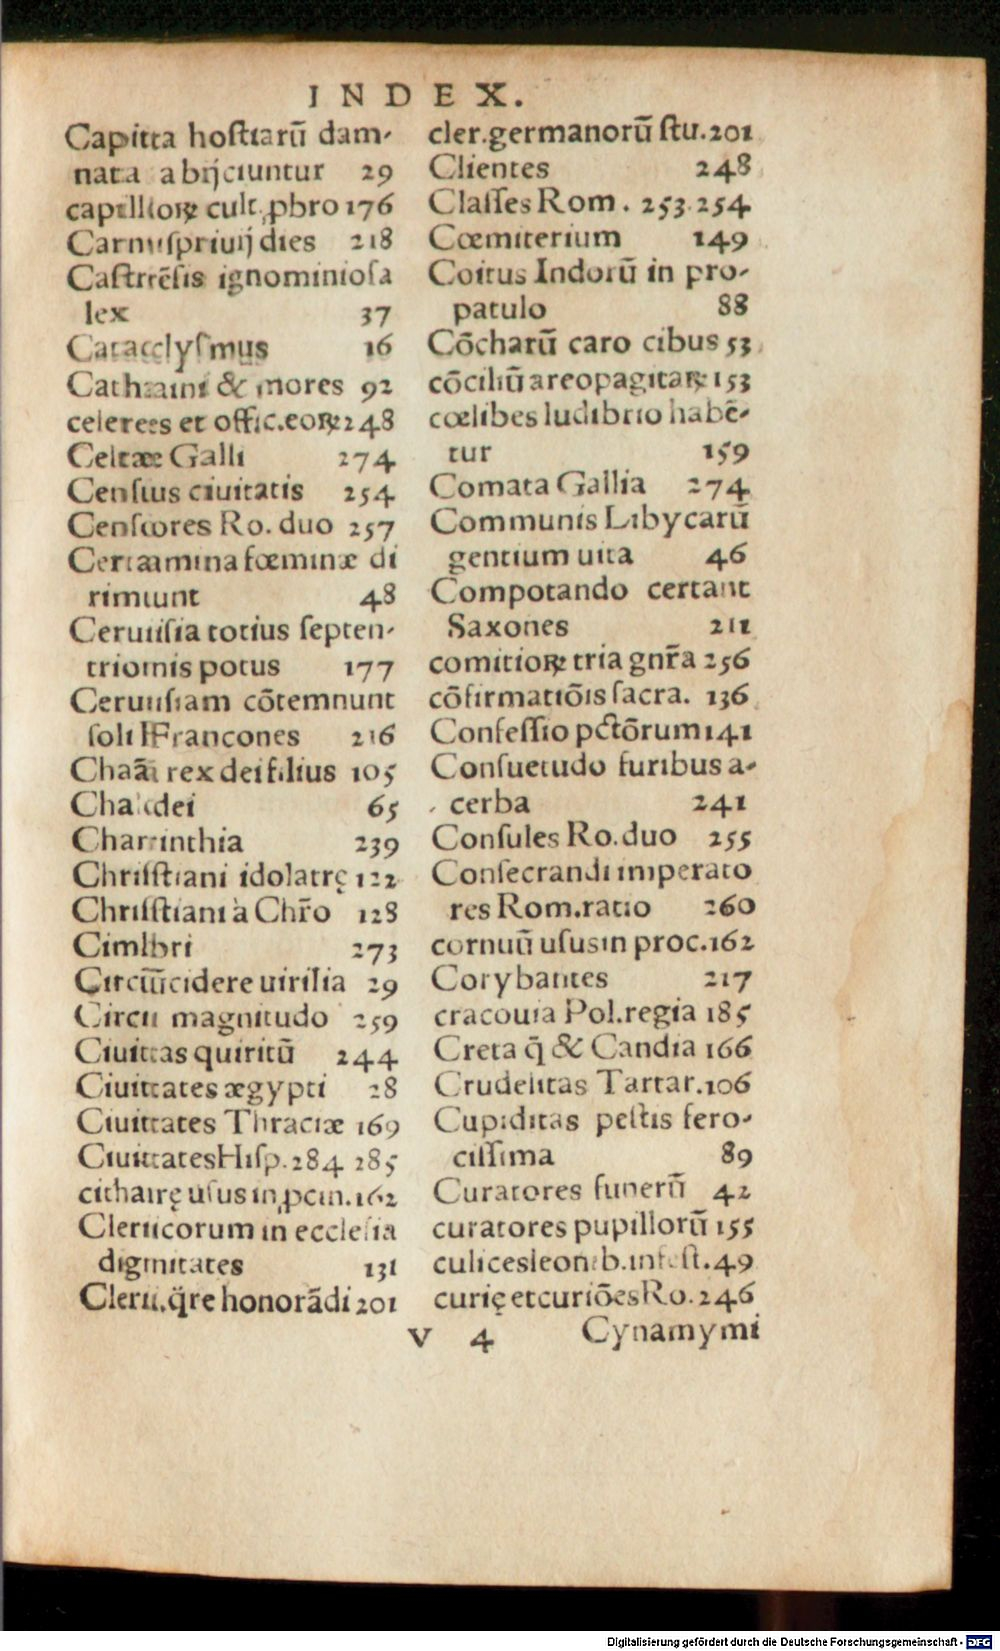 INDEX.
Capita hostiarū dam-
nata abijciuntur 29
capillorꝝ cult, ꝓbro 176
Carnispriuij dies 218
Castrēsis ignominiosa
lex 37
Cataclysmus 16
Cathaini & mores 92
celeres et offic.eorꝝ 248
Celtæ Galli 274
Census ciuitatis 254
Censores Ro. duo 257
Certamina fœminæ di
rimunt 48
Ceruisia totius septen-
trionis potus 177
Ceruisiam cōtemnunt
soli Francones 216
Chaā rex dei filius 105
Chaldei 65
Charinthia 239
Christiani idolatrę 122
Christiani à Chr̄o 128
Cimbri 273
Circūcidere uirilia 29
Circi magnitudo 259
Ciuitas quiritū 244
Ciuitates ægypti 28
Ciuitates Thraciæ 169
Ciuitates Hisp. 284 285
citharę usus in ꝓcin. 162
Clericorum in ecclesia
dignitates 131
Cleri.q̈re honorādi 201
cler.germanorū stu. 201
Clientes 248
Classes Rom. 253.254
Cœmiterium 149
Coitus Indorū in pro-
patulo 88
Cōcharū caro cibus 53
cōciliū areopagitarꝝ 153
cœlibes ludibrio habē-
tur 159
Comata Gallia 274
Communis Libycarū
gentium uita 46
Compotando certant
Saxones 211
comitiorꝝ tria gnr̄a 256
cōfirmatiōis sacra. 136
Confessio pctōrum 141
Consuetudo furibus a-
cerba 241
Consules Ro.duo 255
Consecrandi imperato
res Rom.ratio 260
cornuū usus in proc. 162
Corybantes 217
cracouia Pol.regia 185
Creta q̄ & Candia 166
Crudelitas Tartar. 106
Cupiditas pestis fero-
cissima 89
Curatores funerū 42
curatores pupillorū 155
culices leonib.infest. 49
curię et curiōes Ro. 246
V 4 Cynamymi
Digitalisierung gefördert durch die Deutsche Forschungsgemeinschaft - DFG